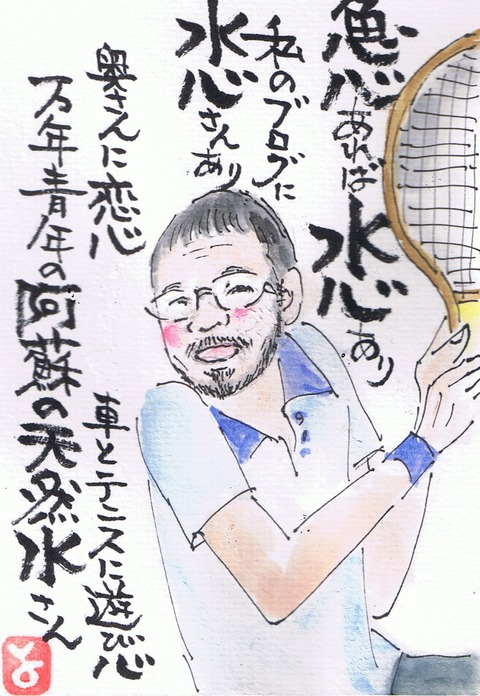 魚心あれば
水心あり
私のブログに
水心さんあり
奥さんに恋心
車とテニスに遊び心
万年青年の阿蘇の天然水さん